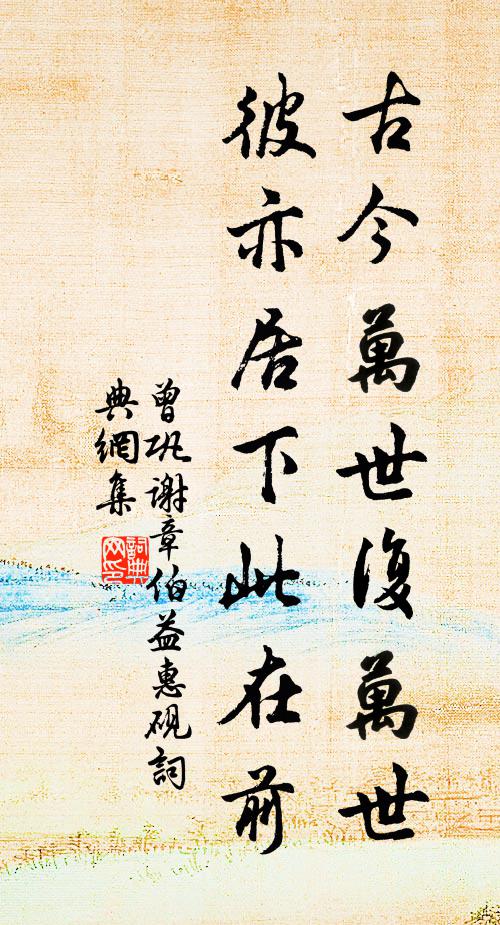 古今萬世復萬世
彼亦居下此在前
曾巩谢章伯益惠砚詞
典網集
詞典
网印